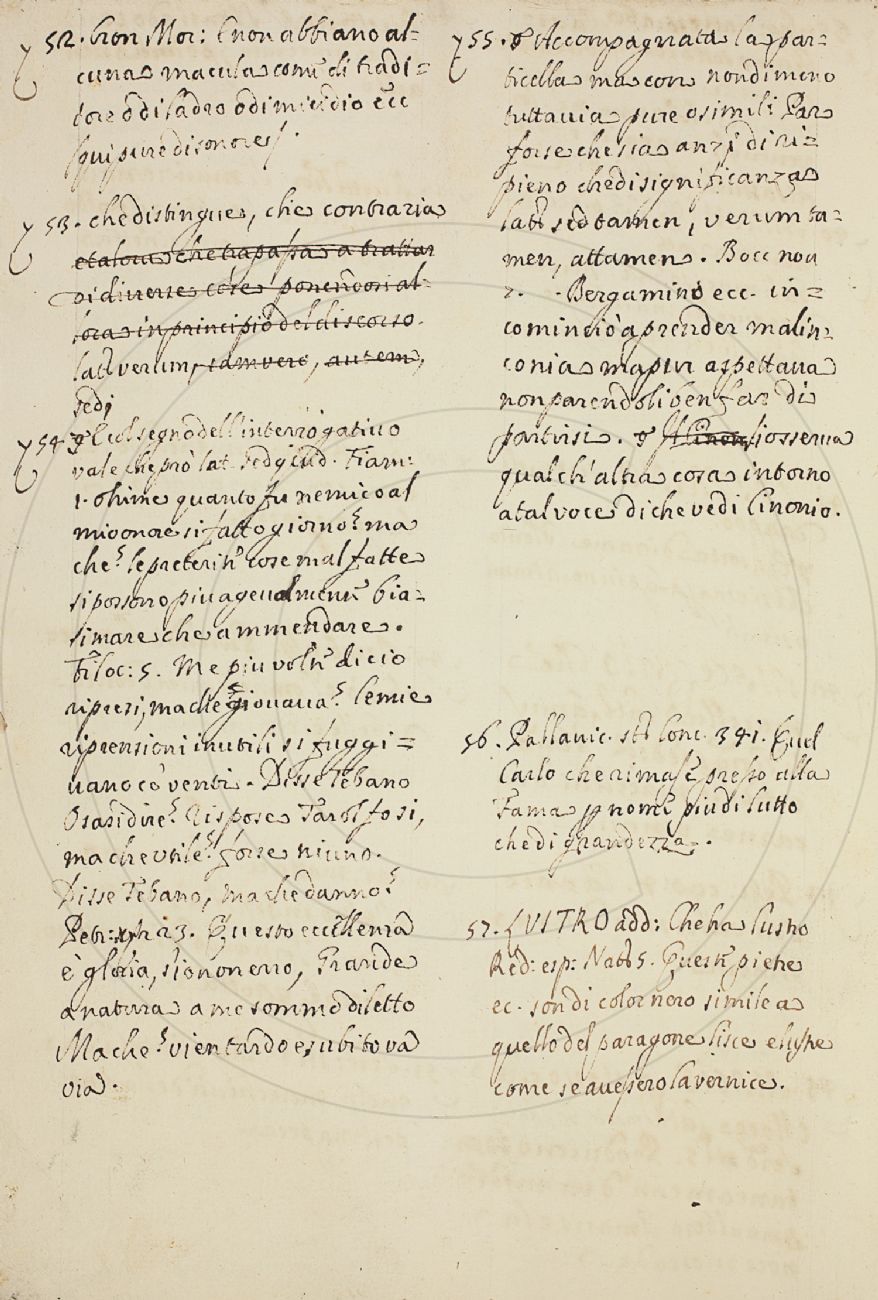 52. Cron Mor: E non abbiano al-
cuna macula come di tradi=
tore o di ladro o d'omicidio ecc
qui pure disonores.
53. che distingue, che contraria
et alora che trapassa a trattar
di diverse cose ponendosi al-
lora in principio del discorso.
lat verum, tamvero, autem,
sed
54. E col segno dell'interrogativo
vale che prò lat. sed quid. Fiam:
1. ohime quanto fu nemico al
mio onore si fatto giorno? ma
che? le preterite cose mal fatte
si possono piu agevolmente bia-
simare che ammendare.
Filoc: 5. Me piu volte di cio
ripresi, ma che giovava? le mie
riprensioni inutili si fuggi=
vano co venti. Disse Tebano
Osaridire? Rispose Tarolfo si,
ma che utile? forse niuno.
Disse Tebano, ma che danno?
Petr: 23. Questo eccellenza
è gloria, s'io non erro, Grande
a natura a me sommo diletto
Ma che? vien tardo e subito va
via.
55. Accompagnata la par=
ticella ma con nondimeno
tuttavia pure o simili Par
forse che sia anzi di ri=
pieno che di significanza
lat sed tamen, verum ta=
men, attamen. Bocc nov
7. Bergamino ecc. in=
cominciò a prender malin=
conia ma pur aspettava
non parendoli ben far di
partirsi. si osserva
qualch'altra cosa intorno
a tal voce di che vedi Cinonio.
56. Pallavic. Conc. 341. Quel
Carlo che rimase presso alla
Fama p nome piu di tutto
che di grandezza.
57. LUSTRO add: Che ha lustro
Red: esp: Nat 5. Queste pietre
ec. son di color nero simile a
quello del paragone lisce e lustre
come se avessero la vernice.